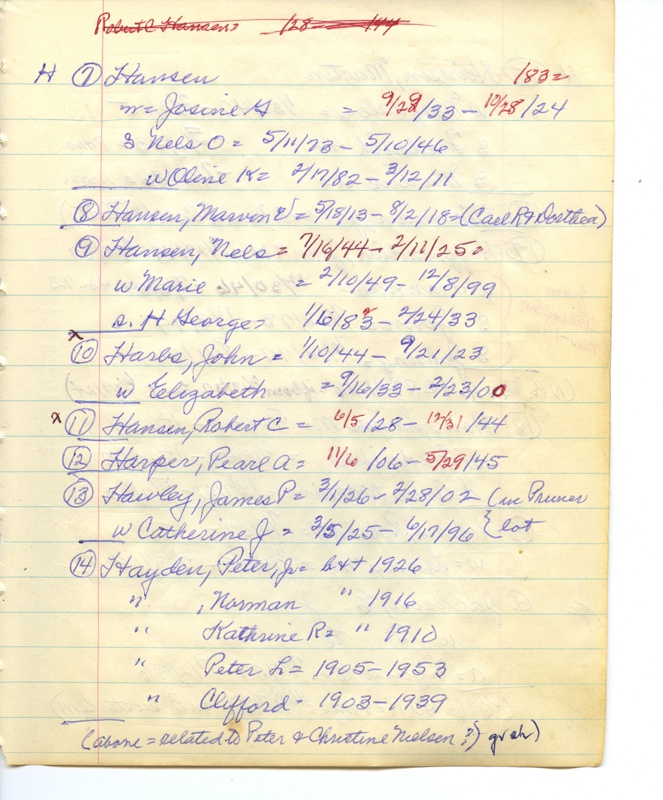 Robert C Hansen = /28 — /44
H ⑦ Hansen /83=
m = Josine H = 9/29/33 – 10/28/24
3 Nels O = 5/11/73 – 5/10/46
w Oline K = 2/17/82 – 3/12/11
⑧ Hansen, Marvin E = 5/15/13 – 8/2/18 = (Carl R & Dorthea)
⑨ Hansen, Nels = 7/16/44 – 2/11/25 =
w Marie = 2/10/49 – 12/8/99
s. H George = 1/6/83 – 2/24/33
x ⑩ Harbs, John = 1/10/44 – 9/21/23
w Elizabeth = 9/16/33 – 2/23/00
x ⑪ Hansen, Robert C = 6/5/28 – 12/31/44
⑫ Harper, Pearl A = 11/6/06 – 5/29/45
⑬ Hawley, James P = 3/1/26 – 2/28/02 (in Pruner
w Catherine J = 3/5/25 – 6/17/96 { lot
⑭ Hayden, Peter, Jr = b & + 1926
" , Norman " 1916
" Kathrine R = " 1910
" Peter L = 1905 – 1953
" Clifford - 1903 – 1939
(above = related to Peter & Christine Nielsen ?)